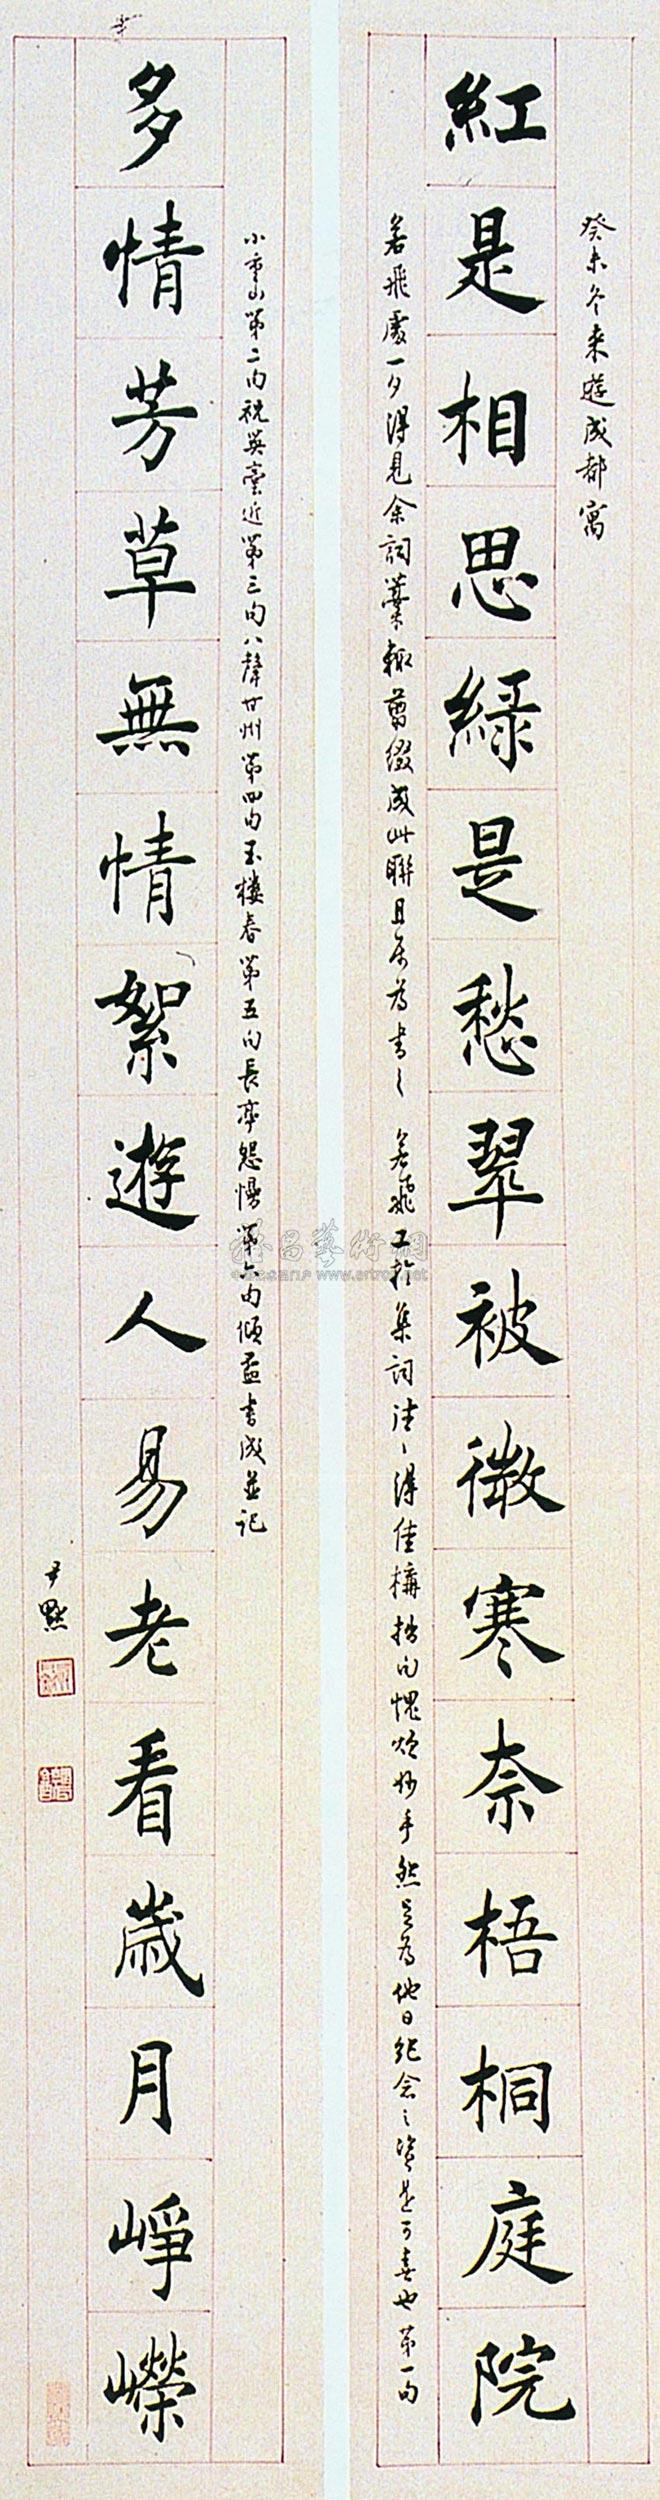 紅是相思綠是愁翠被微寒奈梧桐庭院
癸未冬來遊成都寓
若飛處一夕得見余詞藁輙剪綴成此聯且屬為書之 若飛工於集詞往往得佳構拙句愧煩妙手然足為他日紀念之資是可喜也第一句
多情芳草無情絮遊人易老看歲月崢嶸
小重山第二句祝英臺近第三句八聲甘州第四句玉樓春第五句長亭怨慢第六句傾盃書成並記
尹默
www.artron.net